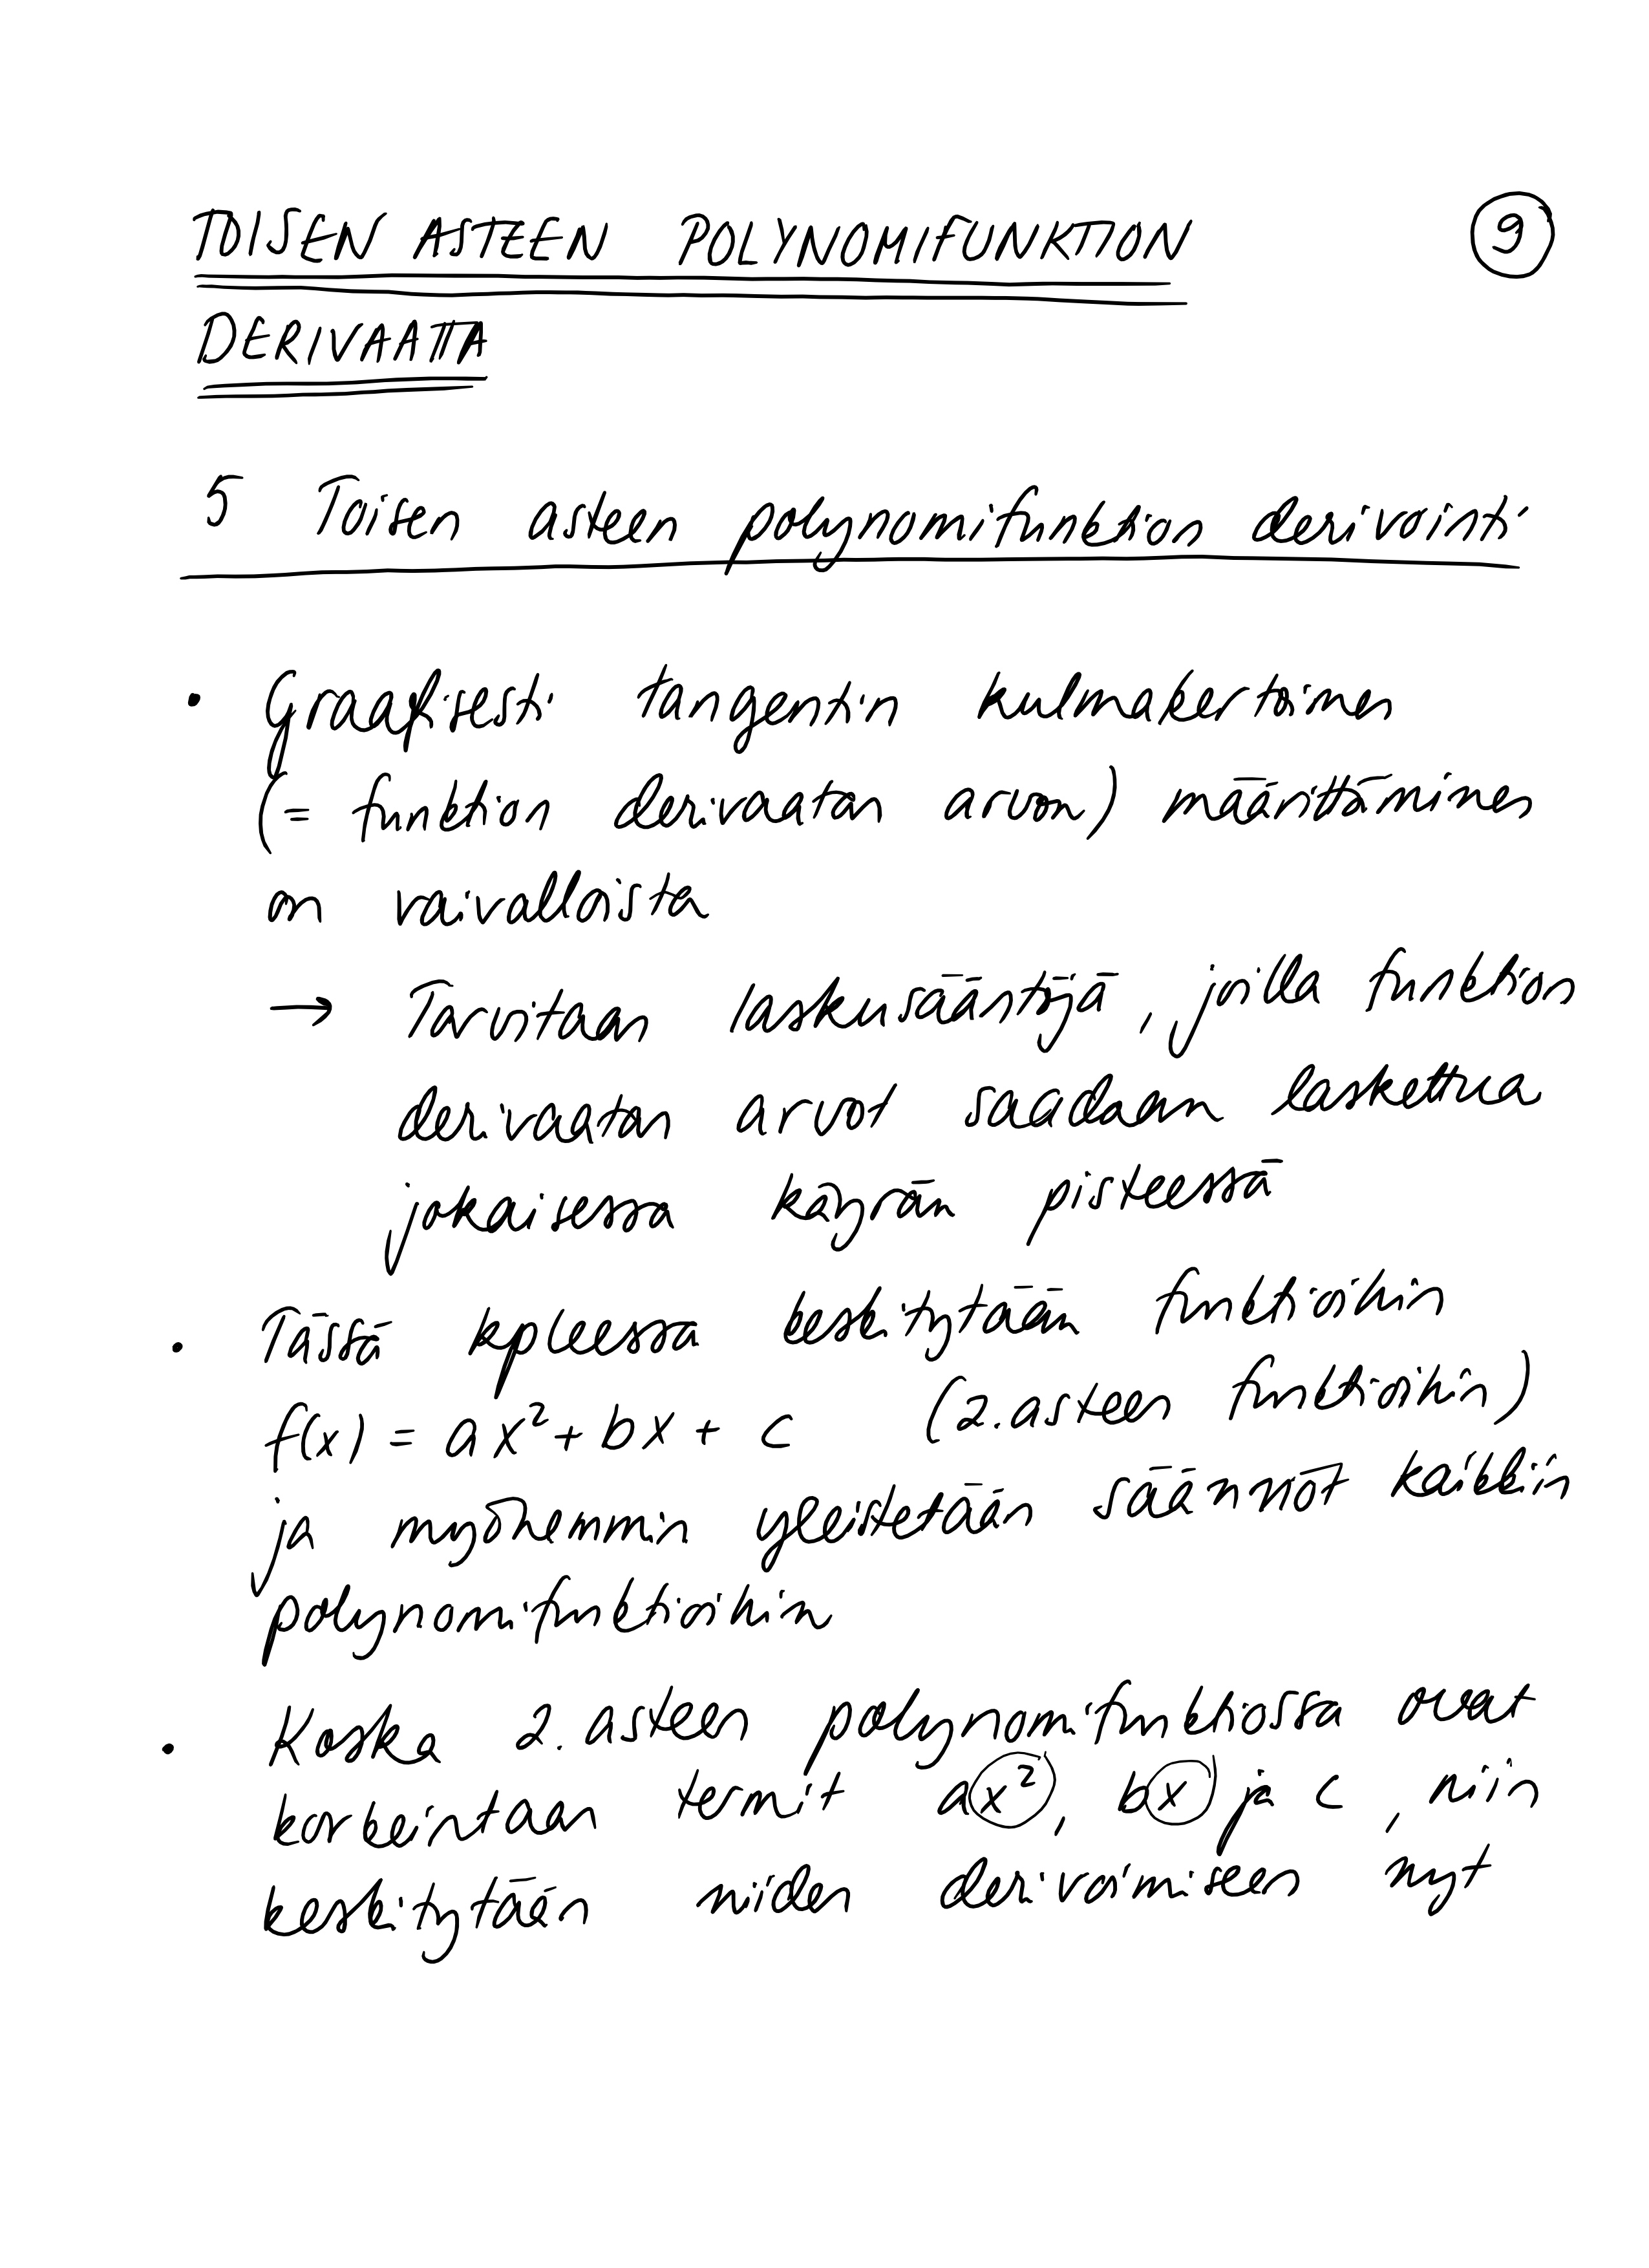 TOISEN ASTEEN POLYNOMIFUNKTION
9
DERIVAATTA
5 Toisen asteen polynomifunktion derivointi
• Graafisesti tangentin kulmakertoimen
(= funktion derivaatan arvon) määrittäminen
on vaivalloista
→ Tarvitaan laskusääntöjä, joilla funktion
derivaatan arvot saadaan laskettua
jokaisessa käyrän pisteessä
• Tässä kpleessa keskitytään funktioihin
f(x) = ax² + bx + c (2. asteen funktioihin)
ja myöhemmin yleistetään säännöt kaikkiin
polynomifunktioihin
• Koska 2. asteen polynomifunktiossa ovat
korkeintaan termit ax², bx ja c, niin
keskitytään niiden derivoimiseen nyt